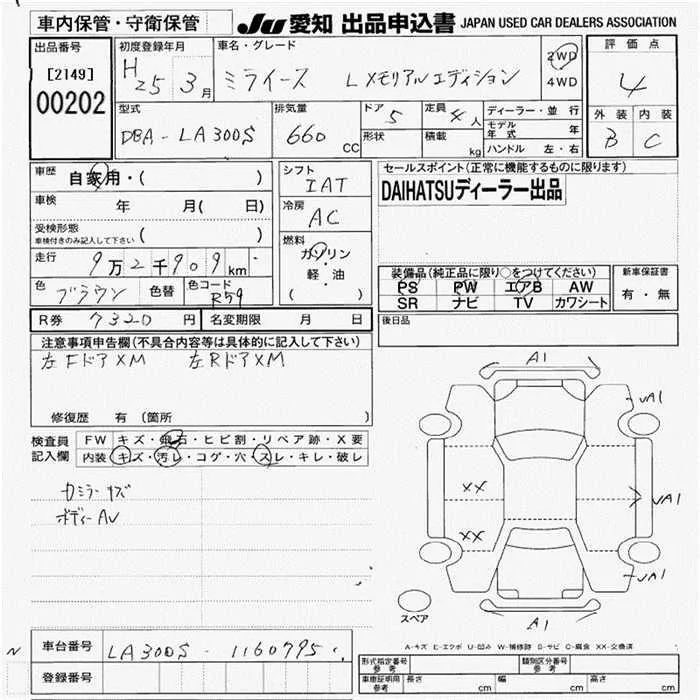 車内保管・守衛保管
JU 愛知 出品申込書 JAPAN USED CAR DEALERS ASSOCIATION
出品番号
[2149]
00202
初度登録年月
H25 3月
車名・グレード
ミライース L メモリアルエディション
2WD
4WD
評価点
4
外装 内装
B C
型式
DBA-LA300S
排気量
660 CC
ドア 5
形状
定員 4 人
積載 kg
ディーラー・並行
モデル年式 年
ハンドル 左・右
車歴
自家用・( )
車検 年 月( 日)
受検形態
車検付きのみ記入して下さい ( )
走行 9万2千909km
色 ブラウン 色替 色コード R59
シフト
IAT
冷房
AC
燃料
ガソリン・
軽・油
( )
セールスポイント(正常に機能するものに限ります)
DAIHATSUディーラー出品
装備品(純正品に限り○をつけてください)
PS PW エアB AW
SR ナビ TV カワシート
新車保証書
有・無
R券 7320 円 名変期限 月 日
後日品
注意事項申告欄(不具合内容等は具体的に記入して下さい)
左FドアXM 左RドアXM
修復歴 有 (箇所
検査員
記入欄
FW キズ・飛石・ヒビ割・リペア跡・X要
内装 キズ・汚レ・コゲ・穴・スレ・キレ・破レ
カミラーキズ
ボディーAU
A1
UA1
XX
UA1
XX
UA1
A1
スペア
A-キズ E-エクボ U-凹み W-補修跡 S-サビ C-腐食 XX-交換済
車台番号 LA300S-1160795
登録番号
形式指定番号
参考
類別区分番号
参考
車庫証明用
参考
長さ cm 幅 cm 高さ cm